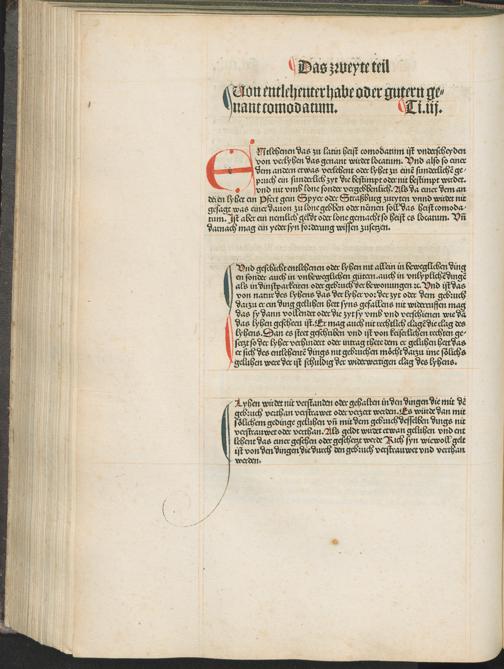 Das zweyte teil
Von entlehenter habe oder gutern ge-
nant comodatum. Ti. iij.
ENtlehenen das zu latin heist comodatum ist vnderscheyden
von verlyhen das genant wirdet locatum. Vnd also so einer
dem andern etwas verlehent oder lyhet zu einē sunderlichē ge-
pruch ein sunderlich zyt die bestimpt oder nit bestimpt wirdet.
vnd nit vmb lone sonder vergebbenlich. Als da einer dem an
deren lyhet ein Pfert gein Spyer oder Straßburg zuryten vnnd wirdet nit
gesagt was einer dauon zu lone geben oder nemen soll das heist comoda-
tum. Ist aber ein nemlich geldt oder lone gemacht so heist es locatum. Vñ
darnach mag ein yeder syn forderung wissen zusetzen.
Vnd geschicht entlehenen oder lyhen nit allein in beweglichen ding
en sonder auch in vnbeweglichen gütern. auch in vnlyplichē dingē
als in dinstparkeiten oder gebruch der bewonungen ꝛc. Vnd ist das
von natur des lyhens das der lyher vor der zyt oder dem gebruch
darzu er ein ding geluhen hett syns gefallens nit widerruffen mag
das sy dann vollendet oder die zyt sy vmb vnd verschienen wie dā
das lyhen gescheen ist. Er mag auch nit rechtlich clagē die clag des
lyhens. Dan es stett geschriben vnd ist von keiserlichen rechten ge-
setzt so der lyher verhindert oder intrag thete dem er geluhen hett das
er sich des entlehentē dings nit gebruchen möcht darzu ime sölichs
geluhen were der ist schuldig der widerwertigen clag des lyhens.
Lyhen wirdet nit verstanden oder gehalten in den dingen die mit dē
gebruch verthan verstrawet oder verzert werden. Es würde dan mit
sölichem gedinge geluhen vñ mit dem gebruch desselben dings nit
verstrawet oder verthan. Als geldt wirdet etwan geluhen vnd ent
lehent das einer gesehen oder geschetzt werde Rich syn wiewoll gelt
ist von den dingen die durch den gebruch verstrauwet vnd verthan
werden.